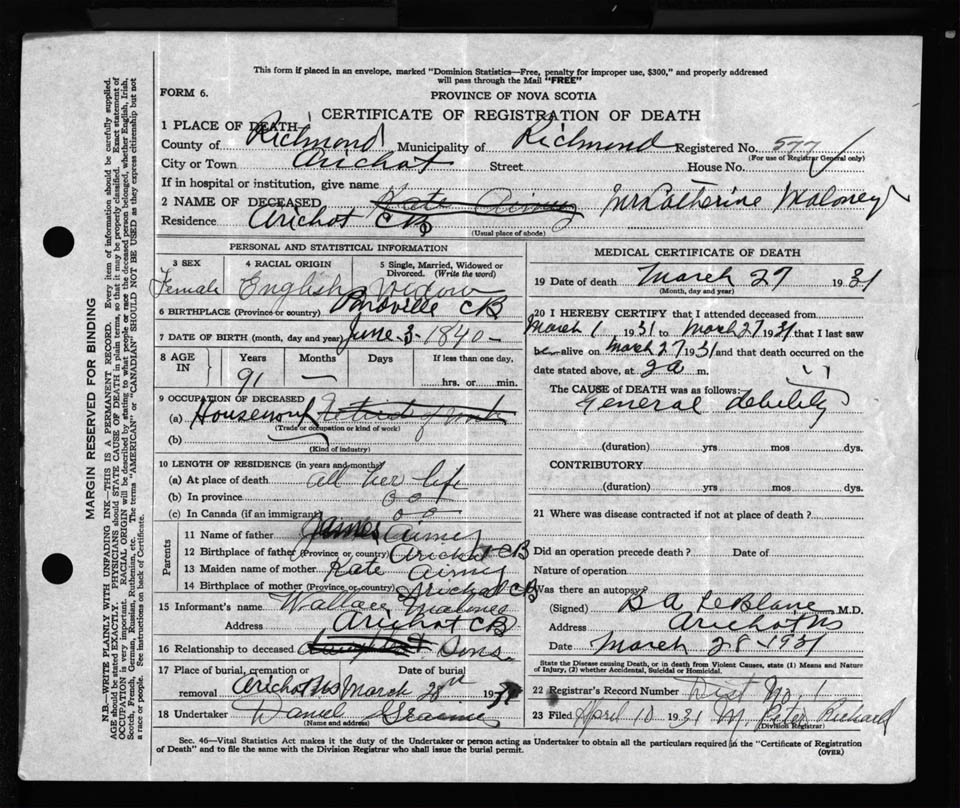 This form if placed in an envelope, marked "Dominion Statistics—Free, penalty for improper use, $300," and properly addressed
will pass through the Mail "FREE"
FORM 6.
PROVINCE OF NOVA SCOTIA
CERTIFICATE OF REGISTRATION OF DEATH
1 PLACE OF DEATH—
County of Richmond Municipality of Richmond Registered No. 577
(For use of Registrar General only)
City or Town Arichat Street House No.
If in hospital or institution, give name
2 NAME OF DECEASED Kate Airney Mrs Catherine Maloney
Residence Arichat CB
(Usual place of abode)
PERSONAL AND STATISTICAL INFORMATION
3 SEX 4 RACIAL ORIGIN 5 Single, Married, Widowed or Divorced. (Write the word)
Female English Widow
6 BIRTHPLACE (Province or country) CB
7 DATE OF BIRTH (month, day and year) June 3 - 1840 -
8 AGE IN Years Months Days If less than one day,
91 — hrs. or min.
9 OCCUPATION OF DECEASED
(a) Housework
(Trade or occupation or kind of work)
(b)
(Kind of industry)
10 LENGTH OF RESIDENCE (in years and months)
(a) At place of death all her life
(b) In province
(c) In Canada (if an immigrant)
Parents
11 Name of father James Airney
12 Birthplace of father (Province or country) Arichat CB
13 Maiden name of mother Kate Airney
14 Birthplace of mother (Province or country) Arichat CB
15 Informant's name Wallace Maloney
Address Arichat CB
16 Relationship to deceased Daughter Sons
17 Place of burial, cremation or removal Date of burial
Arichat NS March 28th 1931
18 Undertaker Daniel
(Name and address)
MEDICAL CERTIFICATE OF DEATH
19 Date of death March 27 1931
(Month, day and year)
20 I HEREBY CERTIFY that I attended deceased from
March 1 1931 to March 27 1931 that I last saw
her alive on March 27 1931 and that death occurred on the
date stated above, at 2 a m.
The CAUSE OF DEATH was as follows:
General debility
(duration) yrs mos dys.
CONTRIBUTORY
(duration) yrs mos dys.
21 Where was disease contracted if not at place of death?
Did an operation precede death? Date of
Nature of operation
Was there an autopsy?
(Signed) B A LeBlanc M.D.
Address Arichat NS
Date March 28 - 1931
State the Disease causing Death, or in death from Violent Causes, state (1) Means and Nature
of Injury, (2) whether Accidental, Suicidal or Homicidal.
22 Registrar's Record Number Dist No. 1
23 Filed April 10 1931 M. Peter Richard
(Division Registrar)
Sec. 46—Vital Statistics Act makes it the duty of the Undertaker or person acting as Undertaker to obtain all the particulars required in the "Certificate of Registration
of Death" and to file the same with the Division Registrar who shall issue the burial permit.
(OVER)
MARGIN RESERVED FOR BINDING
N.B.—WRITE PLAINLY WITH UNFADING INK—THIS IS A PERMANENT RECORD. Every item of information should be carefully supplied.
AGE should be stated EXACTLY. PHYSICIANS should STATE CAUSE OF DEATH in plain terms, so that it may be properly classified. Exact statement of
OCCUPATION is very important. RACIAL ORIGIN will be described by stating to what people or race the deceased person belonged, whether English, Irish,
Scotch, French, German, Russian, Ruthenian, etc. The terms "AMERICAN" or "CANADIAN" SHOULD NOT BE USED as they express citizenship but not
a race or people. See instructions on back of Certificate.